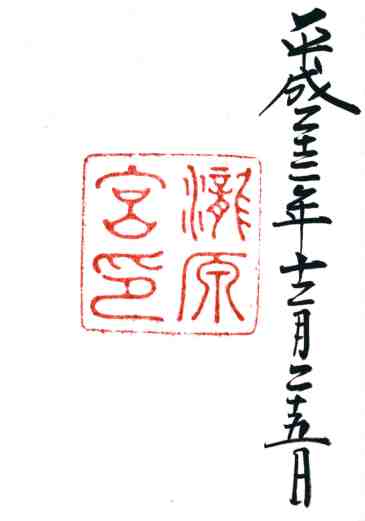 平成二十二年十二月二十五日
瀧原
宮印